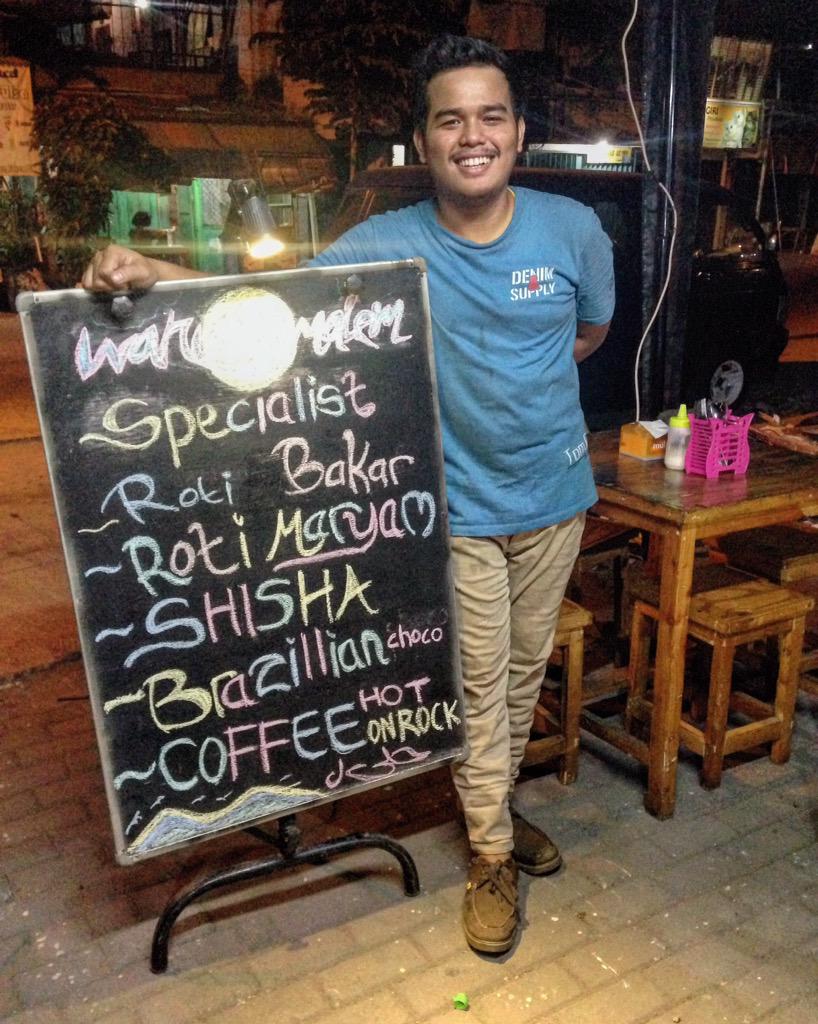 malem
Specialist
~ Roti Bakar
~ Roti Maryam
~ SHISHA
~ Brazillian choco
~ COFFEE HOT
ON ROCK
DENIM
SUPPLY